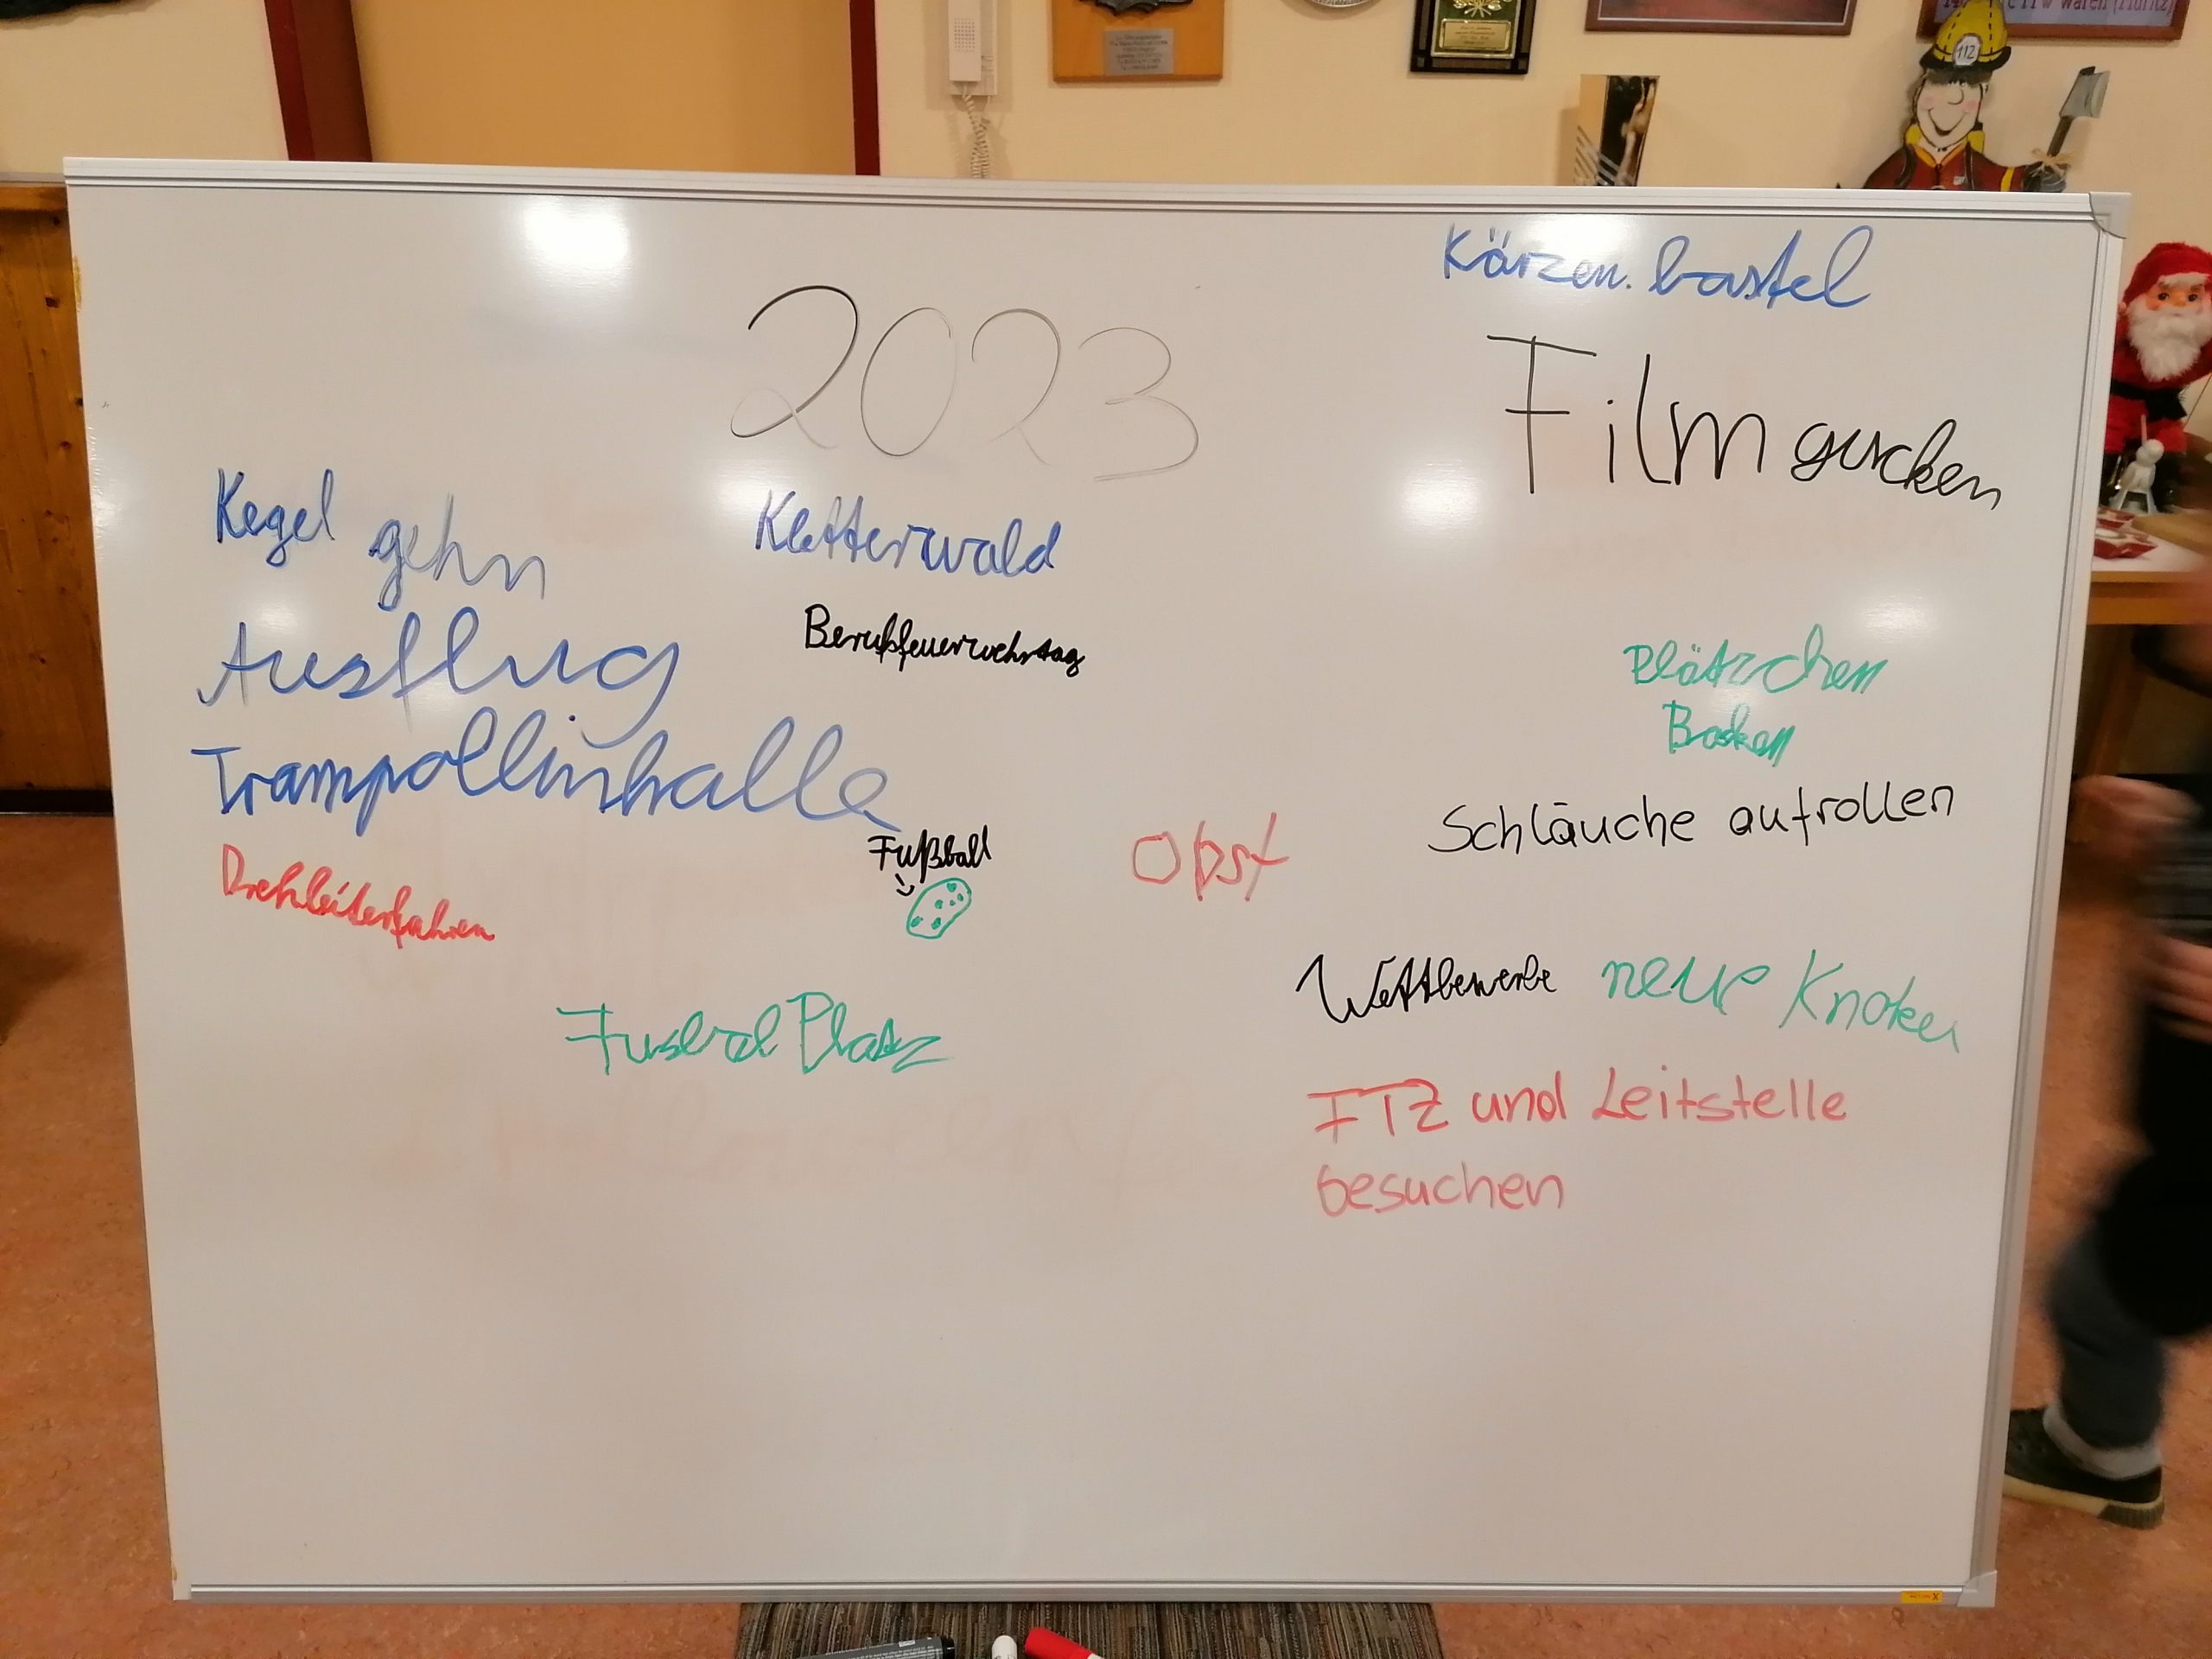 112
Kärzen. bastel
2023
Film gucken
Kegel gehn
Kletterwald
Ausflug
Berufsfeuerwehrtag
Plätzchen
Backen
Trampollinhalle
Schläuche aufrollen
Fußball
Obst
Drehleiterfahren
Wettbewerbe neue Knoten
Fusbal Platz
FTZ und Leitstelle
besuchen